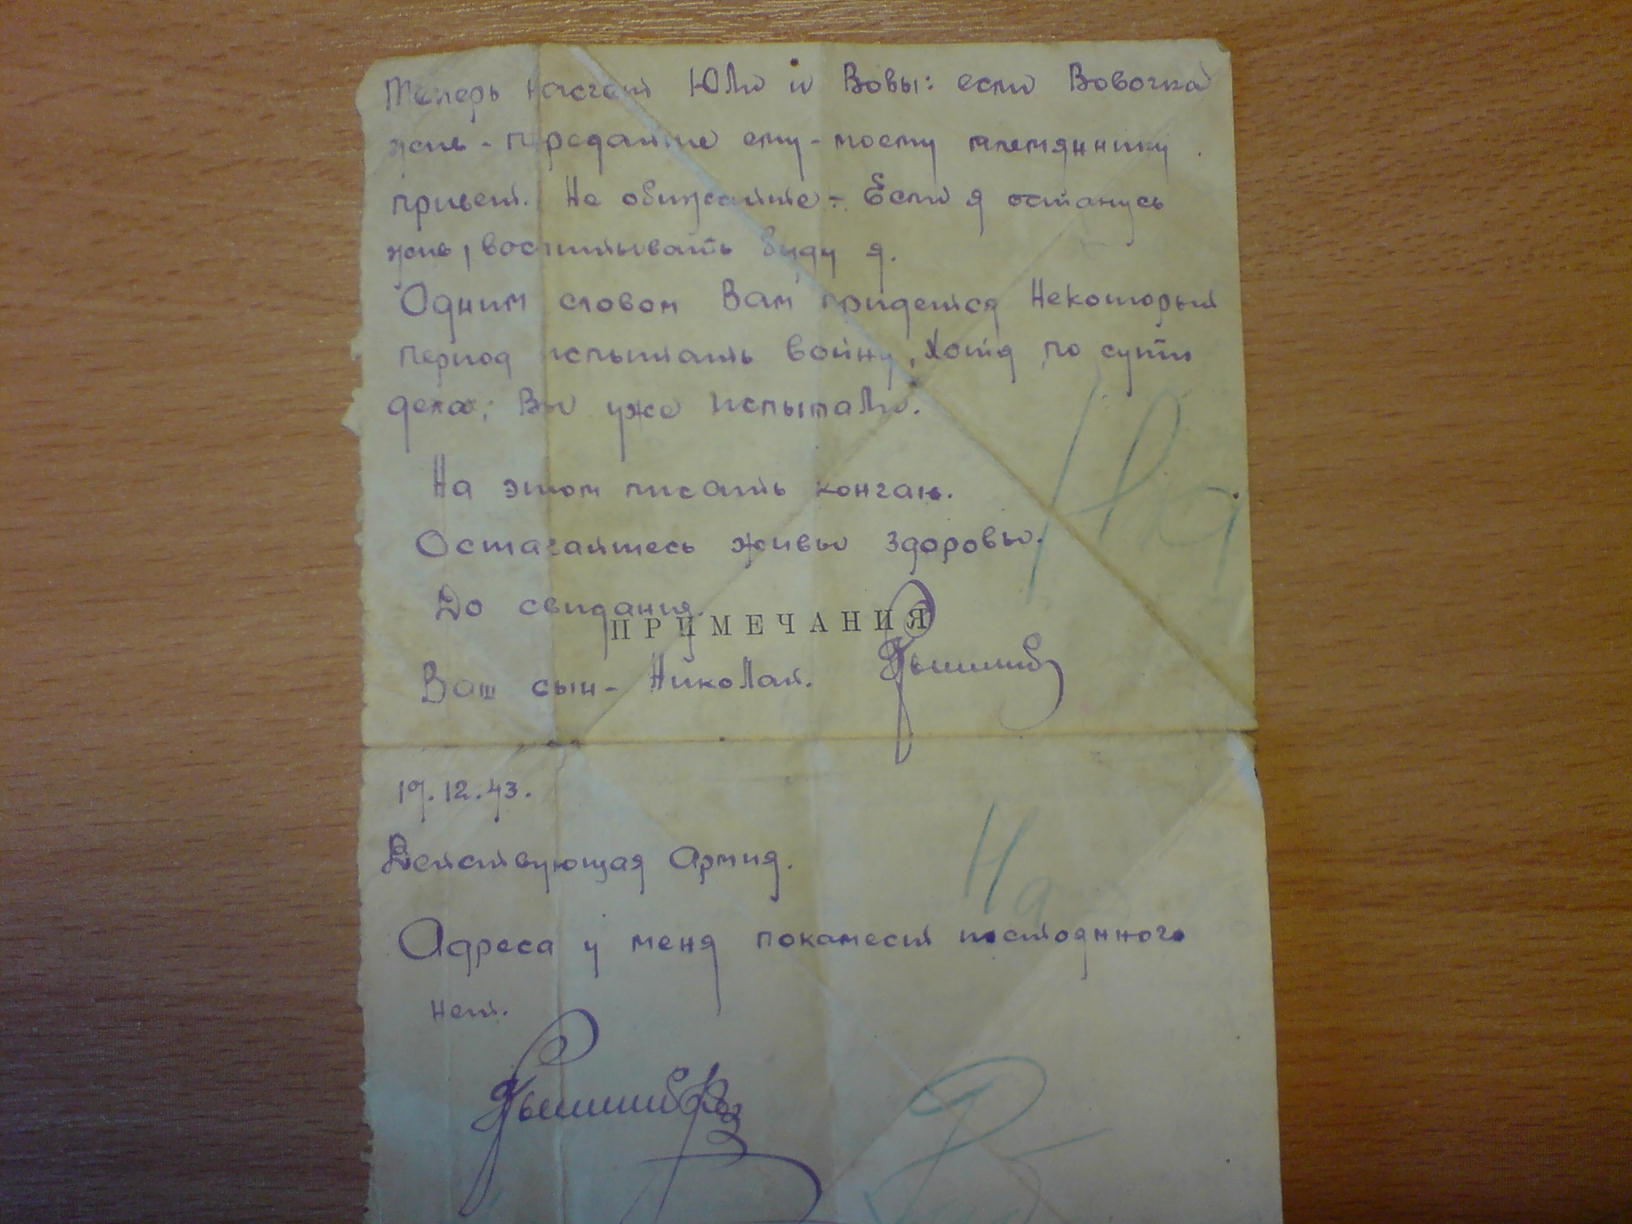 Теперь насчет Юли и Вовы: если Вовочка
жив - передайте ему - моему племяннику
привет. Не обижайте - Если я останусь
жив, воспитывать буду я.
Одним словом Вам придется некоторый
период испытать войну, Хотя по сути
дела, Вы уже испытали.
На этом писать кончаю.
Оставайтесь живы здоровы.
До свидания.
ПРИМЕЧАНИЯ
Ваш сын - Николай.
19.12.43.
Действующая Армия.
На
Адреса у меня покамест постоянного
нет.